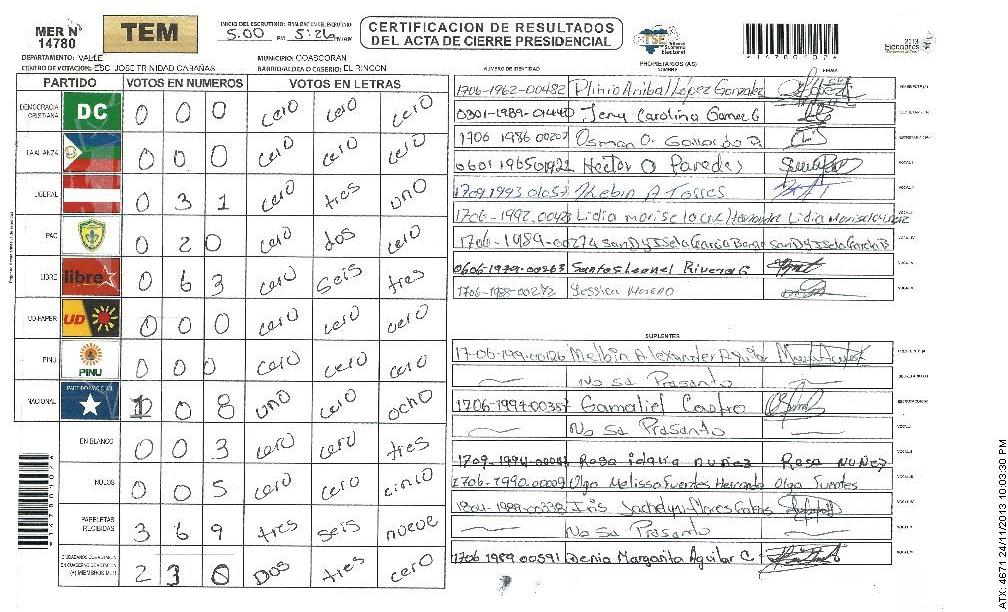 MER N° 14780
TEM
INICIO DEL ESCRUTINIO: FINALIZACION DEL ESCRUTINIO
5.00 PM 5:26
CERTIFICACION DE RESULTADOS
DEL ACTA DE CIERRE PRESIDENCIAL
TSE Tribunal Supremo Electoral
2013 Elecciones
DEPARTAMENTO: VALLE MUNICIPIO: GOASCORAN
CENTRO DE VOTACION: ESC. JOSE TRINIDAD CABAÑAS BARRIO/ALDEA O CASERIO: EL RINCON
PARTIDO VOTOS EN NUMEROS VOTOS EN LETRAS
DEMOCRACIA CRISTIANA DC 0 0 0 cero cero cero
LA ALIANZA 0 0 0 cero cero cero
LIBERAL 0 3 1 cero tres uno
PAC 0 2 0 cero dos cero
LIBRE libre 0 6 3 cero seis tres
UD-FAPER UD 0 0 0 cero cero cero
PINU PINU 0 0 0 cero cero cero
NACIONAL PARTIDO NACIONAL 1 0 8 uno cero ocho
EN BLANCO 0 0 3 cero cero tres
NULOS 0 0 5 cero cero cinco
PAPELETAS RECIBIDAS 3 6 9 tres seis nueve
(+) MIEMBROS MER 2 3 0 Dos tres cero
NUMERO DE IDENTIDAD PROPIETARIOS (AS) NOMBRE FIRMA
1706-1962-00482 Plinio Anibal Lopez Gonzalez
0301-1989-01440 Jeny Carolina Gomez G
1706 1986 00207 Osman O. Gallardo
0601 1965 01922 Hector O Paredes
1709 1993 01057 Kebin A Torres
1706-1992-0042 Lidia
1706-1989-00274 Sandy Isela Garcia
0606-1979-00263 Santos Leonel Rivera G
1706-1988-00272 Yessica Moreno
SUPLENTES
Melbin Alexander
No sa Prasanto
1706-1994-00357 Gamaliel Castro
No sa Prasanto
Rosa idalia nuñez Rosa Nuñez
1706-1990-00009 Olga Melissa Fuentes Olga Fuentes
Iris
No sa Prasanto
1706 1989 00591 Denia Margarita Aguilar C.
ATX: 4671 24/11/2013 10:03:30 PM